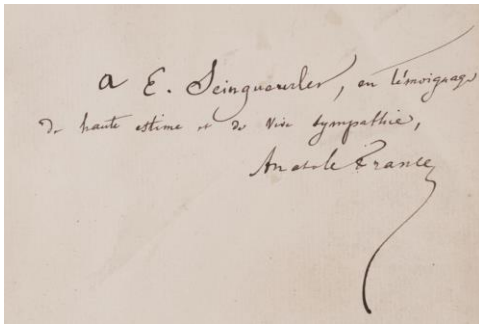 a E. Seinguerlet, en témoignage
de haute estime et de vive sympathie,
Anatole France